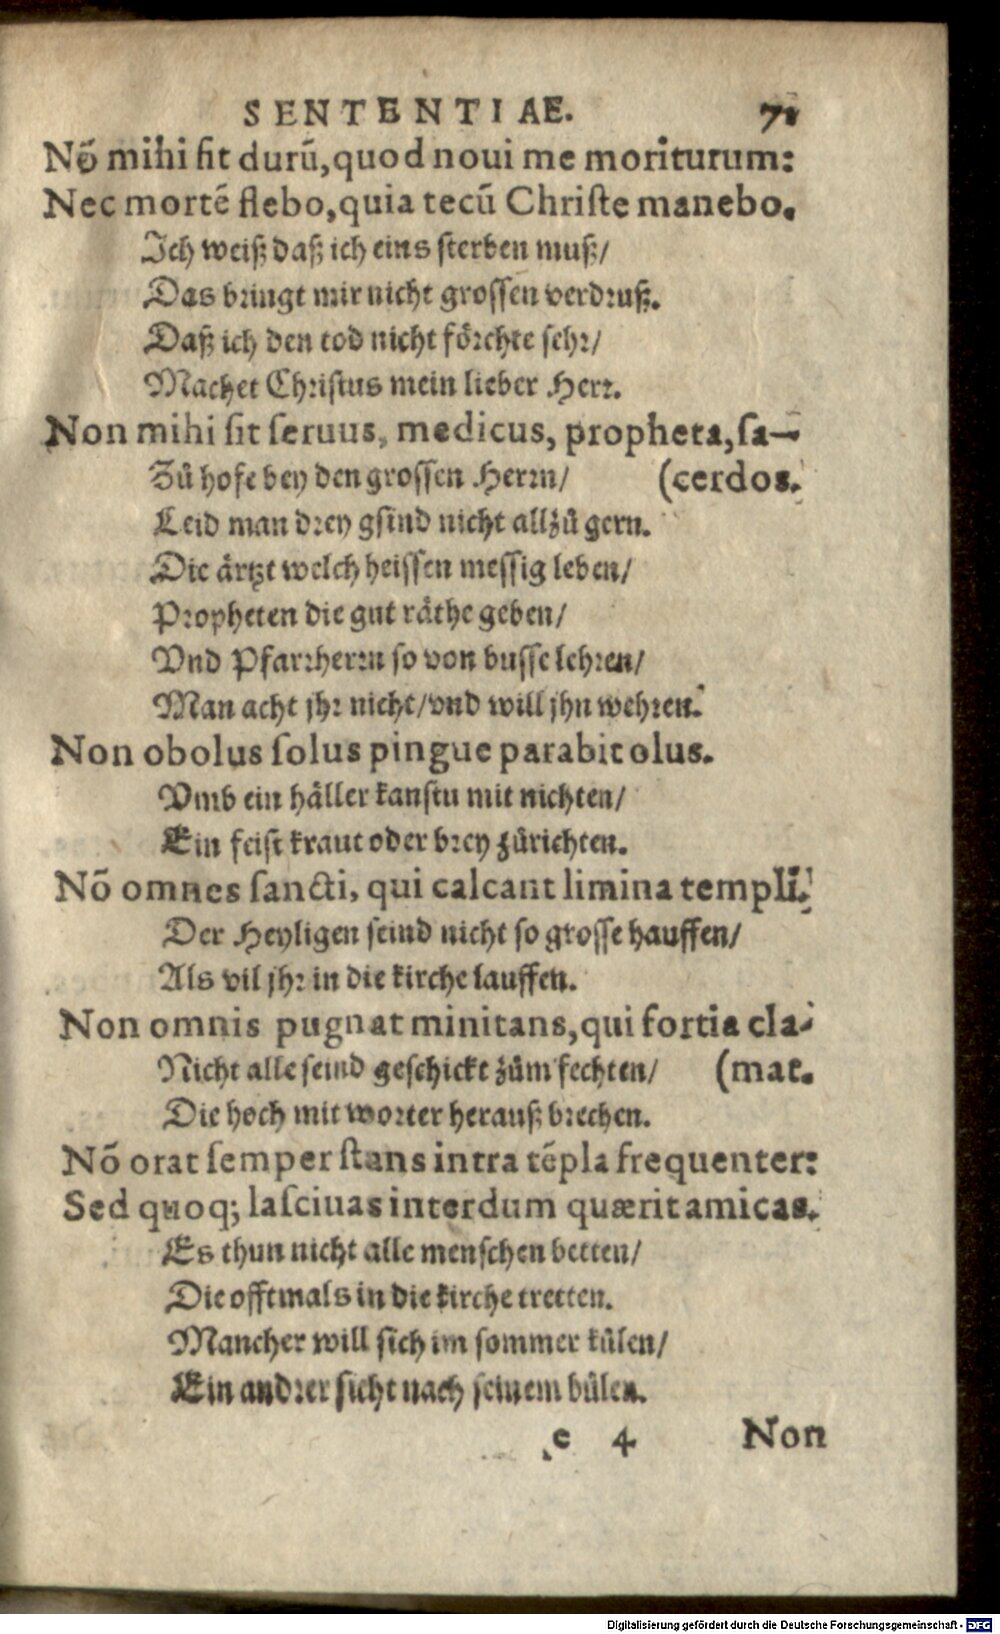 SENTENTIAE. 71
Nō mihi sit durũ, quod noui me moriturum:
Nec mortē flebo, quia tecũ Christe manebo.
Ich weiß daß ich eins sterben muß/
Das bringt mir nicht grossen verdruß.
Daß ich den tod nicht förchte sehr/
Machet Christus mein lieber Herr.
Non mihi sit seruus, medicus, propheta, sa-
Zů hofe bey den grossen Herrn/ (cerdos.
Leid man drey gsind nicht allzů gern.
Die ärtzt welch heissen messig leben/
Propheten die gut räthe geben/
Vnd Pfarrherrn so von busse lehren/
Man acht jhr nicht/vnd will jhn wehren.
Non obolus solus pingue parabit olus.
Vmb ein häller kanstu mit nichten/
Ein feist kraut oder brey zůrichten.
Nō omnes sancti, qui calcant limina templi.
Der Heyligen seind nicht so grosse hauffen/
Als vil jhr in die kirche lauffen.
Non omnis pugnat minitans, qui fortia cla-
Nicht alle seind geschickt zům fechten/ (mat.
Die hoch mit worter herauß brechen.
Nō orat semper stans intra tēpla frequenter:
Sed quoq; lasciuas interdum quærit amicas.
Es thun nicht alle menschen betten/
Die offtmals in die kirche tretten.
Mancher will sich im sommer kůlen/
Ein andrer sicht nach seinem bůlen.
e 4 Non
Digitalisierung gefördert durch die Deutsche Forschungsgemeinschaft - DFG